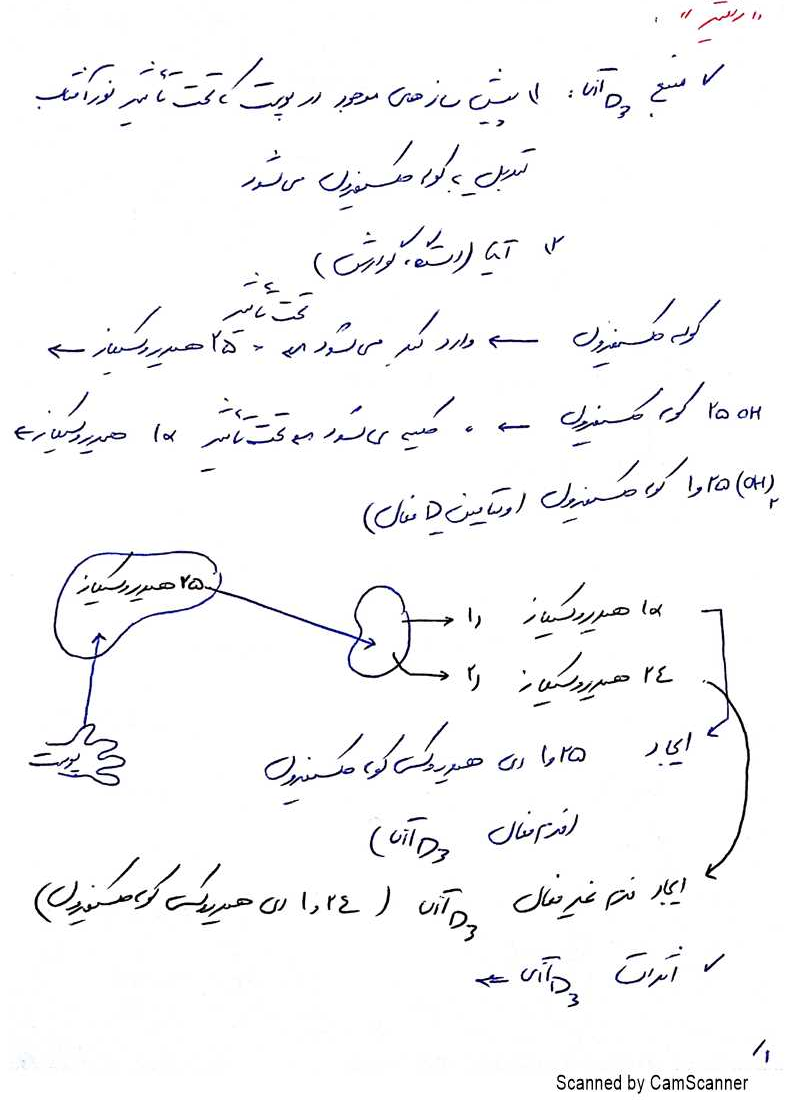 "ریکتز":
✓ منبع D3 آن: ۱) پیش سازهای موجود در پوست که تحت تأثیر نور آفتاب
تبدیل به کوله کلسیفرول می‌شود
۲)
کوله کلسیفرول ← وارد کبد می‌شود تحت تأثیر ۲۵ هیدروکسیلاز ←
۲۵ OH کوله کلسیفرول ← کلیه می‌شود تحت تأثیر ۱α هیدروکسیلاز ←
۱و۲۵(OH)۲ کوله کلسیفرول (ویتامین D فعال)
۲۵ هیدروکسیلاز
۱) ۱α هیدروکسیلاز
۲) ۲٤ هیدروکسیلاز
پوست
ایجاد ۱و۲۵ دی هیدروکسی کوله کلسیفرول
(فرم فعال D3)
ایجاد فرم غیر فعال D3 (۱و۲٤ دی هیدروکسی کوله کلسیفرول)
✓ اثرات D3 ←
۱/
Scanned by CamScanner